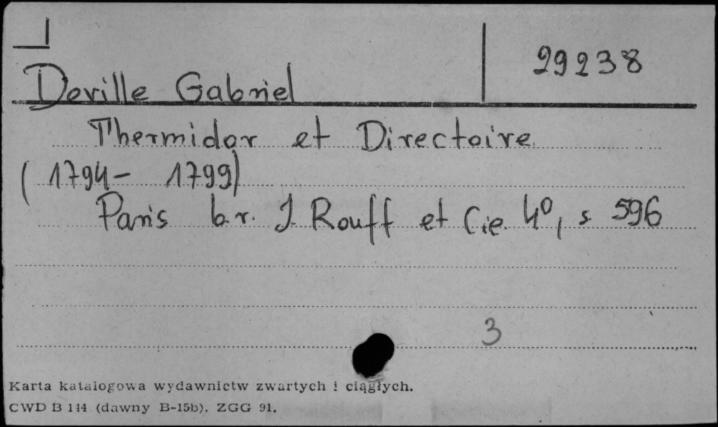 29238
Deville Gabriel
Thermidor et Directoire
(1794 - 1799)
Paris b.r. J. Rouff et Cie. 4°, s 596
3
Karta katalogowa wydawnictw zwartych i ciągłych.
CWD B 114 (dawny B-15b). ZGG 91.